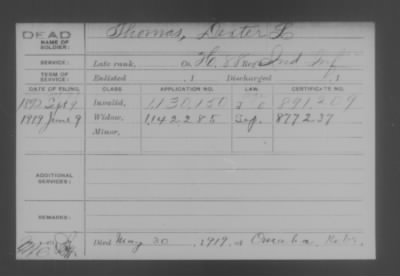 DEAD
NAME OF SOLDIER: Thomas, Dexter L
SERVICE: Late rank, Co. H, 88 Reg't Ind Inf
TERM OF SERVICE: Enlisted , 1 Discharged , 1
DATE OF FILING. CLASS. APPLICATION NO. LAW. CERTIFICATE NO.
1892 Sept 9 Invalid, 1,130,150 891,209
1919 June 9 Widow, 1,142,285 Sep. 877237
Minor,
ADDITIONAL SERVICES:
REMARKS:
Died May 30, 1919, at Omaha, Nebr.